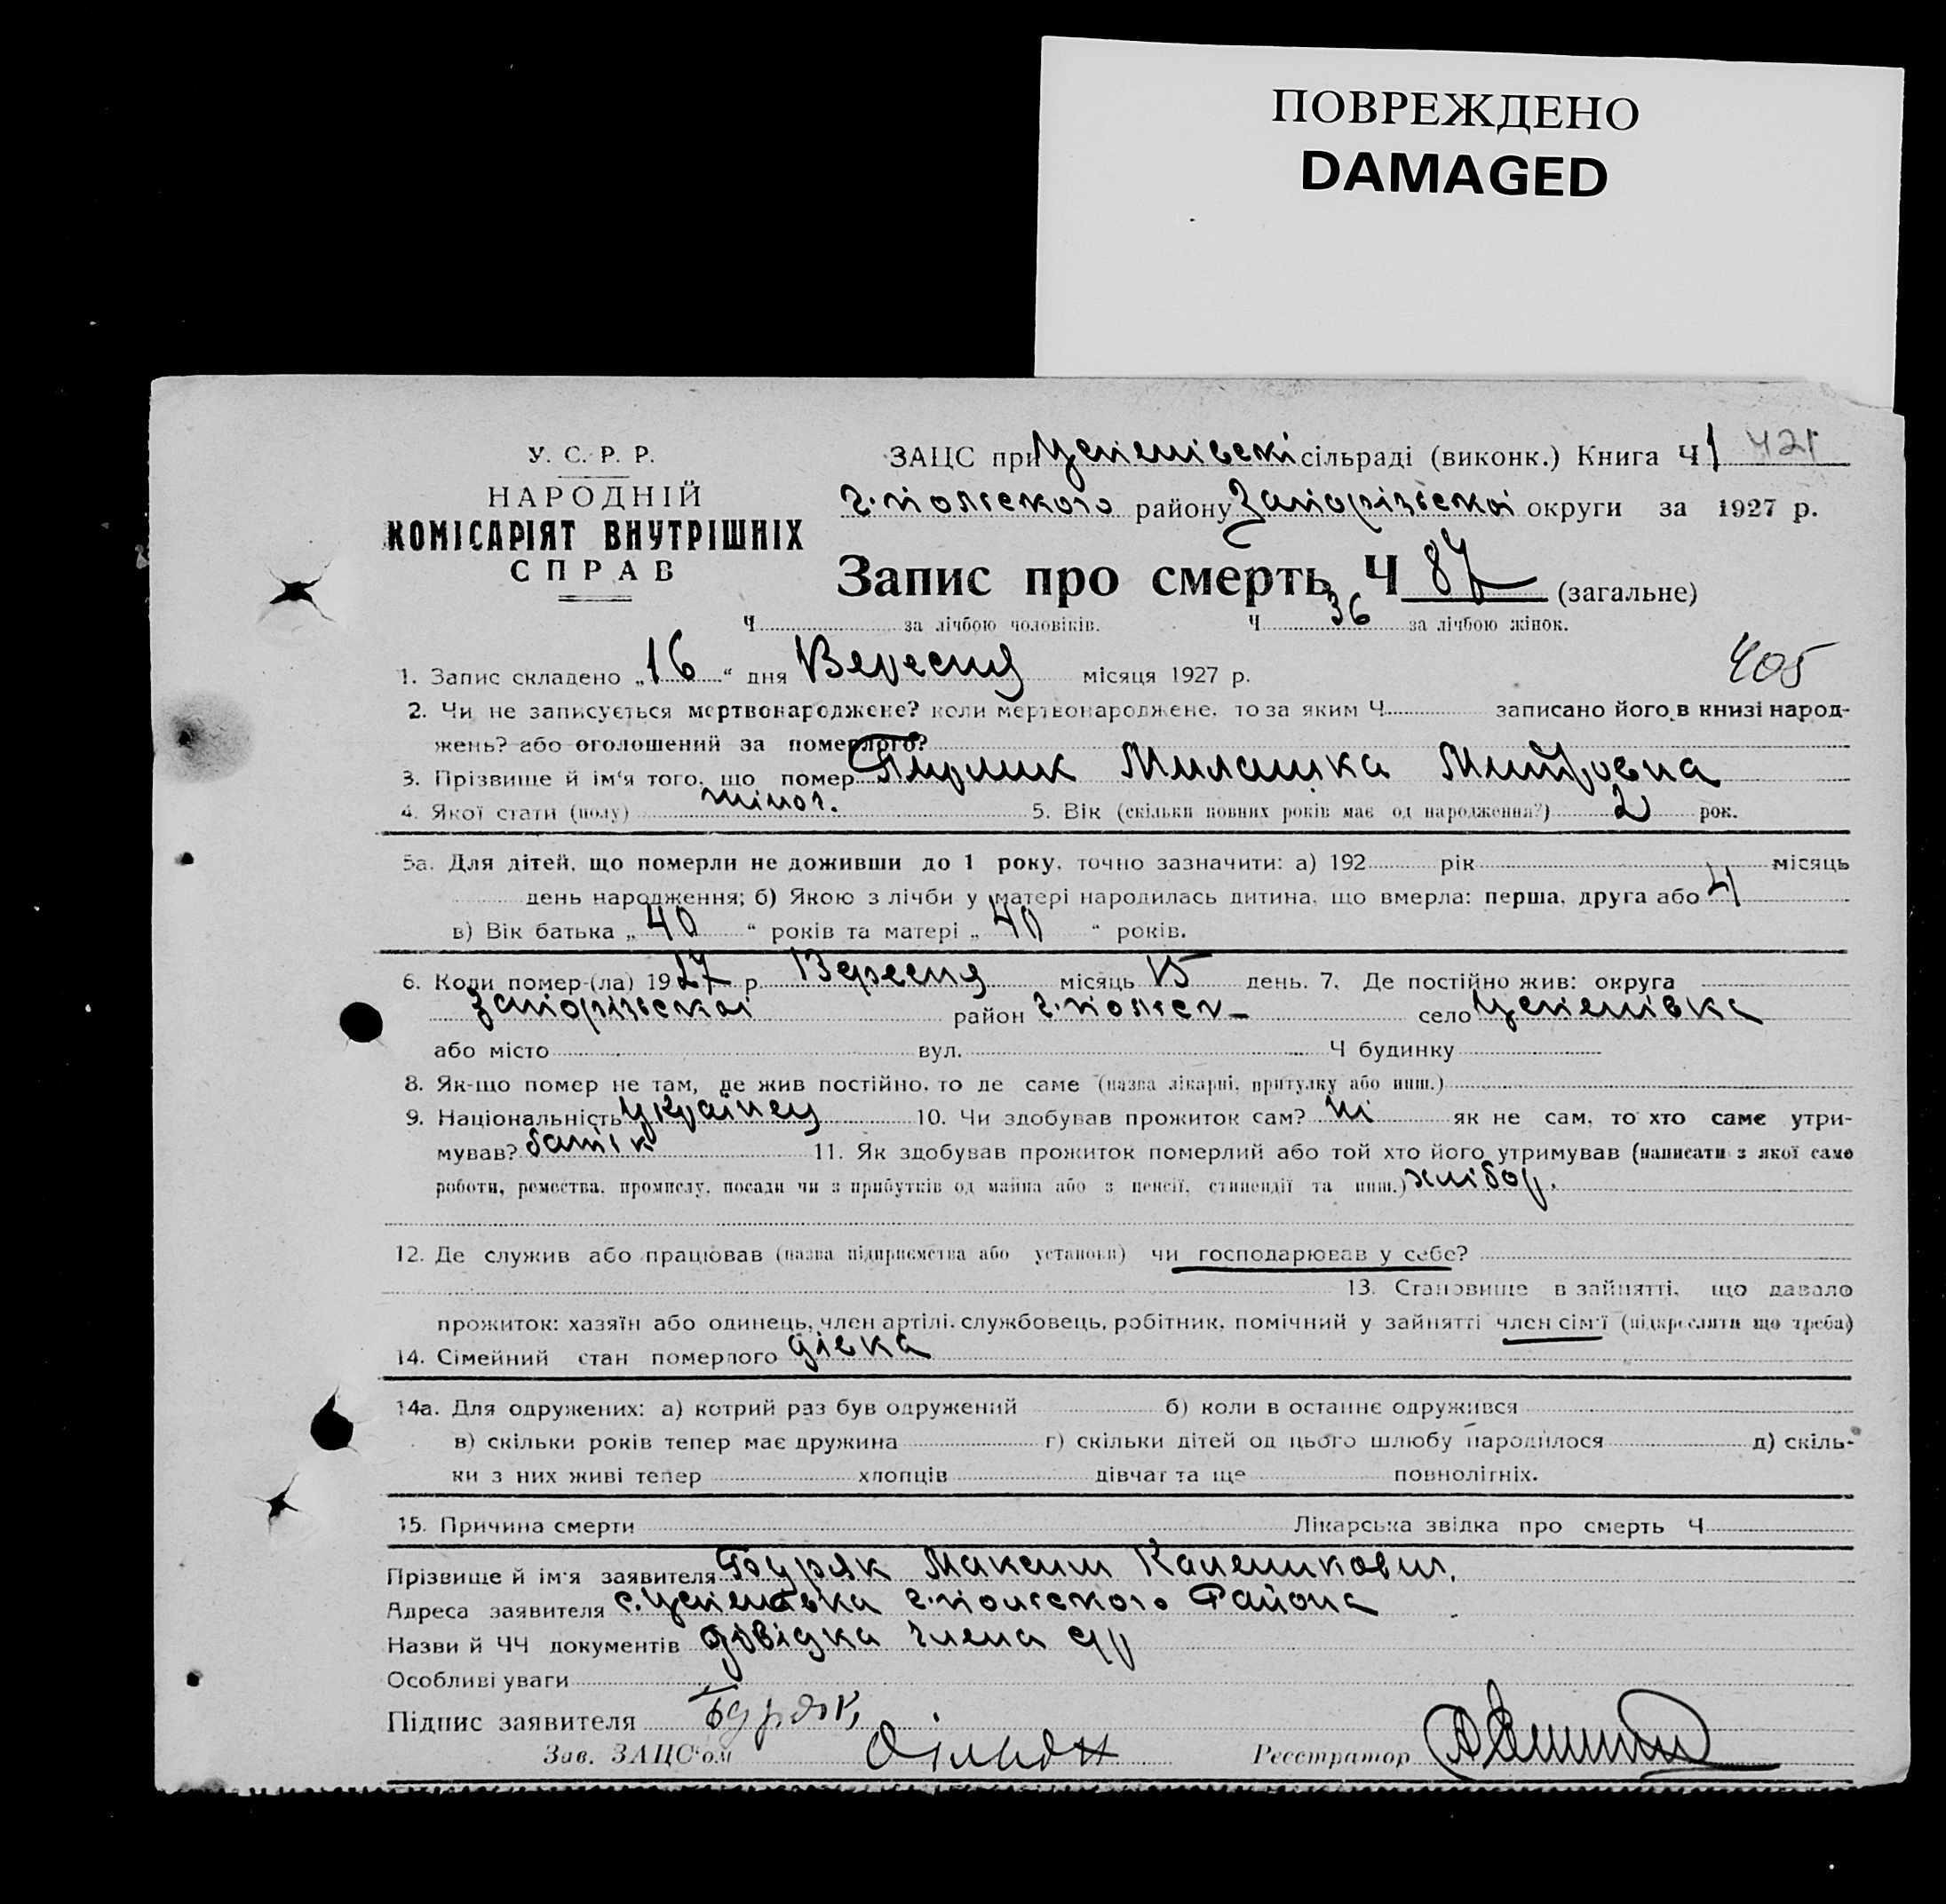 ПОВРЕЖДЕНО
DAMAGED
У. С. Р. Р.
НАРОДНІЙ
КОМІСАРІЯТ ВНУТРІШНІХ
СПРАВ
ЗАЦС при Успенівські сільраді (виконк.) Книга Ч 1 421
г.польского району Запорізьскоі округи за 1927 р.
Запис про смерть Ч 87 (загальне)
Ч за лічбою чоловіків. Ч 36 за лічбою жінок.
405
1. Запис складено „16“ дня Вересня місяця 1927 р.
2. Чи не записується мертвонароджене? коли мертвонароджене, то за яким Ч записано його в книзі народ-
жень? або оголошений за померлого?
3. Прізвище й ім'я того, що помер Милашка Митровна
4. Якої стати (полу) жіноч. 5. Вік (скільки повних років має од народження?) 2 рок.
5а. Для дітей, що померли не доживши до 1 року, точно зазначити: а) 192 рік місяць
день народження; б) Якою з лічби у матері народилась дитина, що вмерла: перша, друга або 4
в) Вік батька „40“ років та матері „40“ років.
6. Коли помер-(ла) 1927 р. Вересня місяць 15 день. 7. Де постійно жив: округа
Запорізьскоі район г.польск- село Успенівка
або місто вул. Ч будинку
8. Як-що помер не там, де жив постійно, то де саме (назва лікарні, притулку або инш.)
9. Національність Українец 10. Чи здобував прожиток сам? Ні як не сам, то хто саме утри-
мував? батік 11. Як здобував прожиток померлий або той хто його утримував (написати з якої саме
роботи, ремества, промислу, посади чи з прибутків од майна або з пенсії, стипендії та инш.) хлібор.
12. Де служив або працював (назва підприємства або установи) чи господарював у себе?
13. Становище в зайнятті, що давало
прожиток: хазяїн або одинець, член артілі, службовець, робітник, помічний у зайнятті член сім'ї (підкреслити що треба)
14. Сімейний стан померлого дівка
14а. Для одружених: а) котрий раз був одружений б) коли в останнє одружився
в) скільки років тепер має дружина г) скільки дітей од цього шлюбу народилося д) скіль-
ки з них живі тепер хлопців дівчат та ще повнолітніх.
15. Причина смерти Лікарська звідка про смерть Ч
Прізвище й ім'я заявителя Буряк Максим
Адреса заявителя с. Успенівка г.польского Района
Назви й ЧЧ документів довідка члена с/р
Особливі уваги
Підпис заявителя Буряк
Зав. ЗАЦС'ом Реєстратор